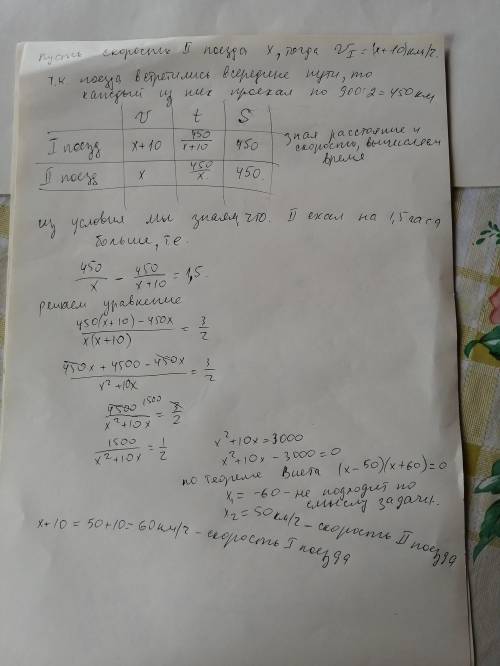 Пусть скорость II поезда x, тогда V_I = (x+10) км/ч.
т.к поезда встретились всередине пути, то
каждый из них проехал по 900:2=450 км
V t S
I поезд x+10 450/(x+10) 450
II поезд x 450/x 450.
зная расстояние и
скорость, вычисляем
время
из условия мы знаем, что. II ехал на 1,5 часа
больше, т.е.
450/x - 450/(x+10) = 1,5.
решаем уравнение
(450(x+10) - 450x)/(x(x+10)) = 3/2
(450x + 4500 - 450x)/(x²+10x) = 3/2
4500 1500/(x²+10x) = 3/2
1500/(x²+10x) = 1/2
x²+10x=3000
x²+10x-3000=0
по теореме Виета (x-50)(x+60)=0
x₁ = -60 - не подходит по
смыслу задачи.
x₂ = 50 км/ч - скорость II поезда
x+10 = 50+10=60 км/ч - скорость I поезда